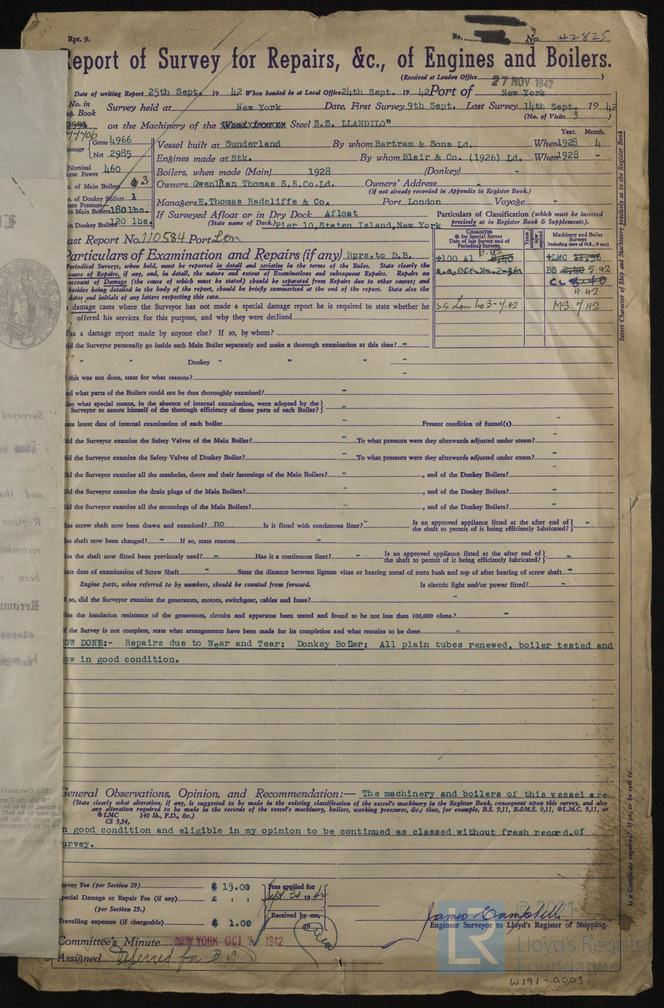 Rpt. 9.
No. 42825
Report of Survey for Repairs, &c., of Engines and Boilers.
(Received at London Office 27 NOV 1942)
Date of writing Report 25th Sept. 19 42 When handed in at Local Office 24th Sept. 19 42 Port of New York
No. in Reg. Book Survey held at New York Date, First Survey 9th Sept. Last Survey 14th Sept. 19 42
(No. of Visits 3)
77706 on the Machinery of the Steel S.S. LLANDILO"
Year. Month.
Tonnage Gross 4966 Net 2985
Vessel built at Sunderland By whom Bartram & Sons Ld. When 1928 4
Engines made at Stk. By whom Blair & Co. (1926) Ld. When 1928 -
Nominal Horse Power 460
Boilers, when made (Main) 1928 (Donkey) -
No. of Main Boilers 3
Owners Gwenllian Thomas S.S.Co.Ld. Owners' Address -
(if not already recorded in Appendix to Register Book.)
No. of Donkey Boilers 1
Managers E. Thomas Radcliffe & Co. Port London Voyage -
in Main Boilers 180 lbs.
in Donkey Boilers 120 lbs.
If Surveyed Afloat or in Dry Dock Afloat
(State name of Dock.) Pier 10, Staten Island, New York
Particulars of Classification (which must be inserted precisely as in Register Book & Supplements).
Last Report No. 110584 Port Lon
CHARACTER
for Special Survey
Date of last Survey and of Periodical Surveys.
Machinery and Boiler Surveys
(Including dates of N.B., if any)
+100 A1
+LMC
BS 5.42
CL
4.42
SS Lon No 3-7.42
MS 7.42
Particulars of Examination and Repairs (if any) Rprs. to D.B.
Periodical Surveys, when held, must be reported in detail and seriatim in the terms of the Rules. State clearly the
cause of Repairs, if any, and, in detail, the nature and extent of Examinations and subsequent Repairs. Repairs on
account of Damage (the cause of which must be stated) should be separated from Repairs due to other causes; and
besides being detailed in the body of the report, should be briefly summarised at the end of the report. State also the
dates and initials of any letters respecting this case.
In damage cases where the Surveyor has not made a special damage report he is required to state whether he
offered his services for this purpose, and why they were declined
Was a damage report made by anyone else? If so, by whom?
Did the Surveyor personally go inside each Main Boiler separately and make a thorough examination at this time? -
" " Donkey " " " " -
If this was not done, state for what reasons? -
And what parts of the Boilers could not be thus thoroughly examined? -
Also what special means, in the absence of internal examination, were adopted by the
Surveyor to assure himself of the thorough efficiency of those parts of each Boiler? -
State latest date of internal examination of each boiler - Present condition of funnel(s) -
Did the Surveyor examine the Safety Valves of the Main Boiler? - To what pressure were they afterwards adjusted under steam? -
Did the Surveyor examine the Safety Valves of Donkey Boiler? - To what pressure were they afterwards adjusted under steam? -
Did the Surveyor examine all the manholes, doors and their fastenings of the Main Boilers? - , and of the Donkey Boilers? -
Did the Surveyor examine the drain plugs of the Main Boilers? - , and of the Donkey Boilers? -
Did the Surveyor examine all the mountings of the Main Boilers? - , and of the Donkey Boilers? -
Has screw shaft now been drawn and examined? no Is it fitted with continuous liner? - Is an approved appliance fitted at the after end of the shaft to permit of it being efficiently lubricated? -
Has shaft now been changed? - If so, state reasons -
Has the shaft now fitted been previously used? - Has it a continuous liner? - Is an approved appliance fitted at the after end of the shaft to permit of it being efficiently lubricated? -
State date of examination of Screw Shaft - State the distance between lignum vitæ or bearing metal of stern bush and top of after bearing of screw shaft -
Engine parts, when referred to by numbers, should be counted from forward. Is electric light and/or power fitted? -
If so, did the Surveyor examine the generators, motors, switchgear, cables and fuses? -
Has the insulation resistance of the generators, circuits and apparatus been tested and found to be not less than 100,000 ohms? -
If the Survey is not complete, state what arrangements have been made for its completion and what remains to be done -
NOW DONE:- Repairs due to Wear and Tear: Donkey Boiler: All plain tubes renewed, boiler tested and
now in good condition.
General Observations, Opinion, and Recommendation:— The machinery and boilers of this vessel are
(State clearly what alteration, if any, is suggested to be made in the existing classification of the vessel's machinery in the Register Book, consequent upon this survey, and also
any alteration required to be made in the records of the vessel's machinery, boilers, working pressures, &c.; thus, for example, B.S. 9,11, B.&M.S. 9,11, LMC. 9,11, or
LMC 140 lb., F.D., &c.)
CS 3,34,
in good condition and eligible in my opinion to be continued as classed without fresh record of
survey.
Survey Fee (per Section 29) $ 15.00
Special Damage or Repair Fee (if any) £ : :
(per Section 29.)
Travelling expenses (if chargeable) $ 1.00
Fees applied for
Sept 1942
Received by me,
James Campbell
Engineer Surveyor to Lloyd's Register of Shipping.
Committee's Minute NEW YORK OCT 7 1942
Assigned Deferred for B.S.
Insert Character of Ship and Machinery precisely as in the Register Book
Is a Certificate required? If so, to be sent to
LR
Lloyd's Register
W191-0003